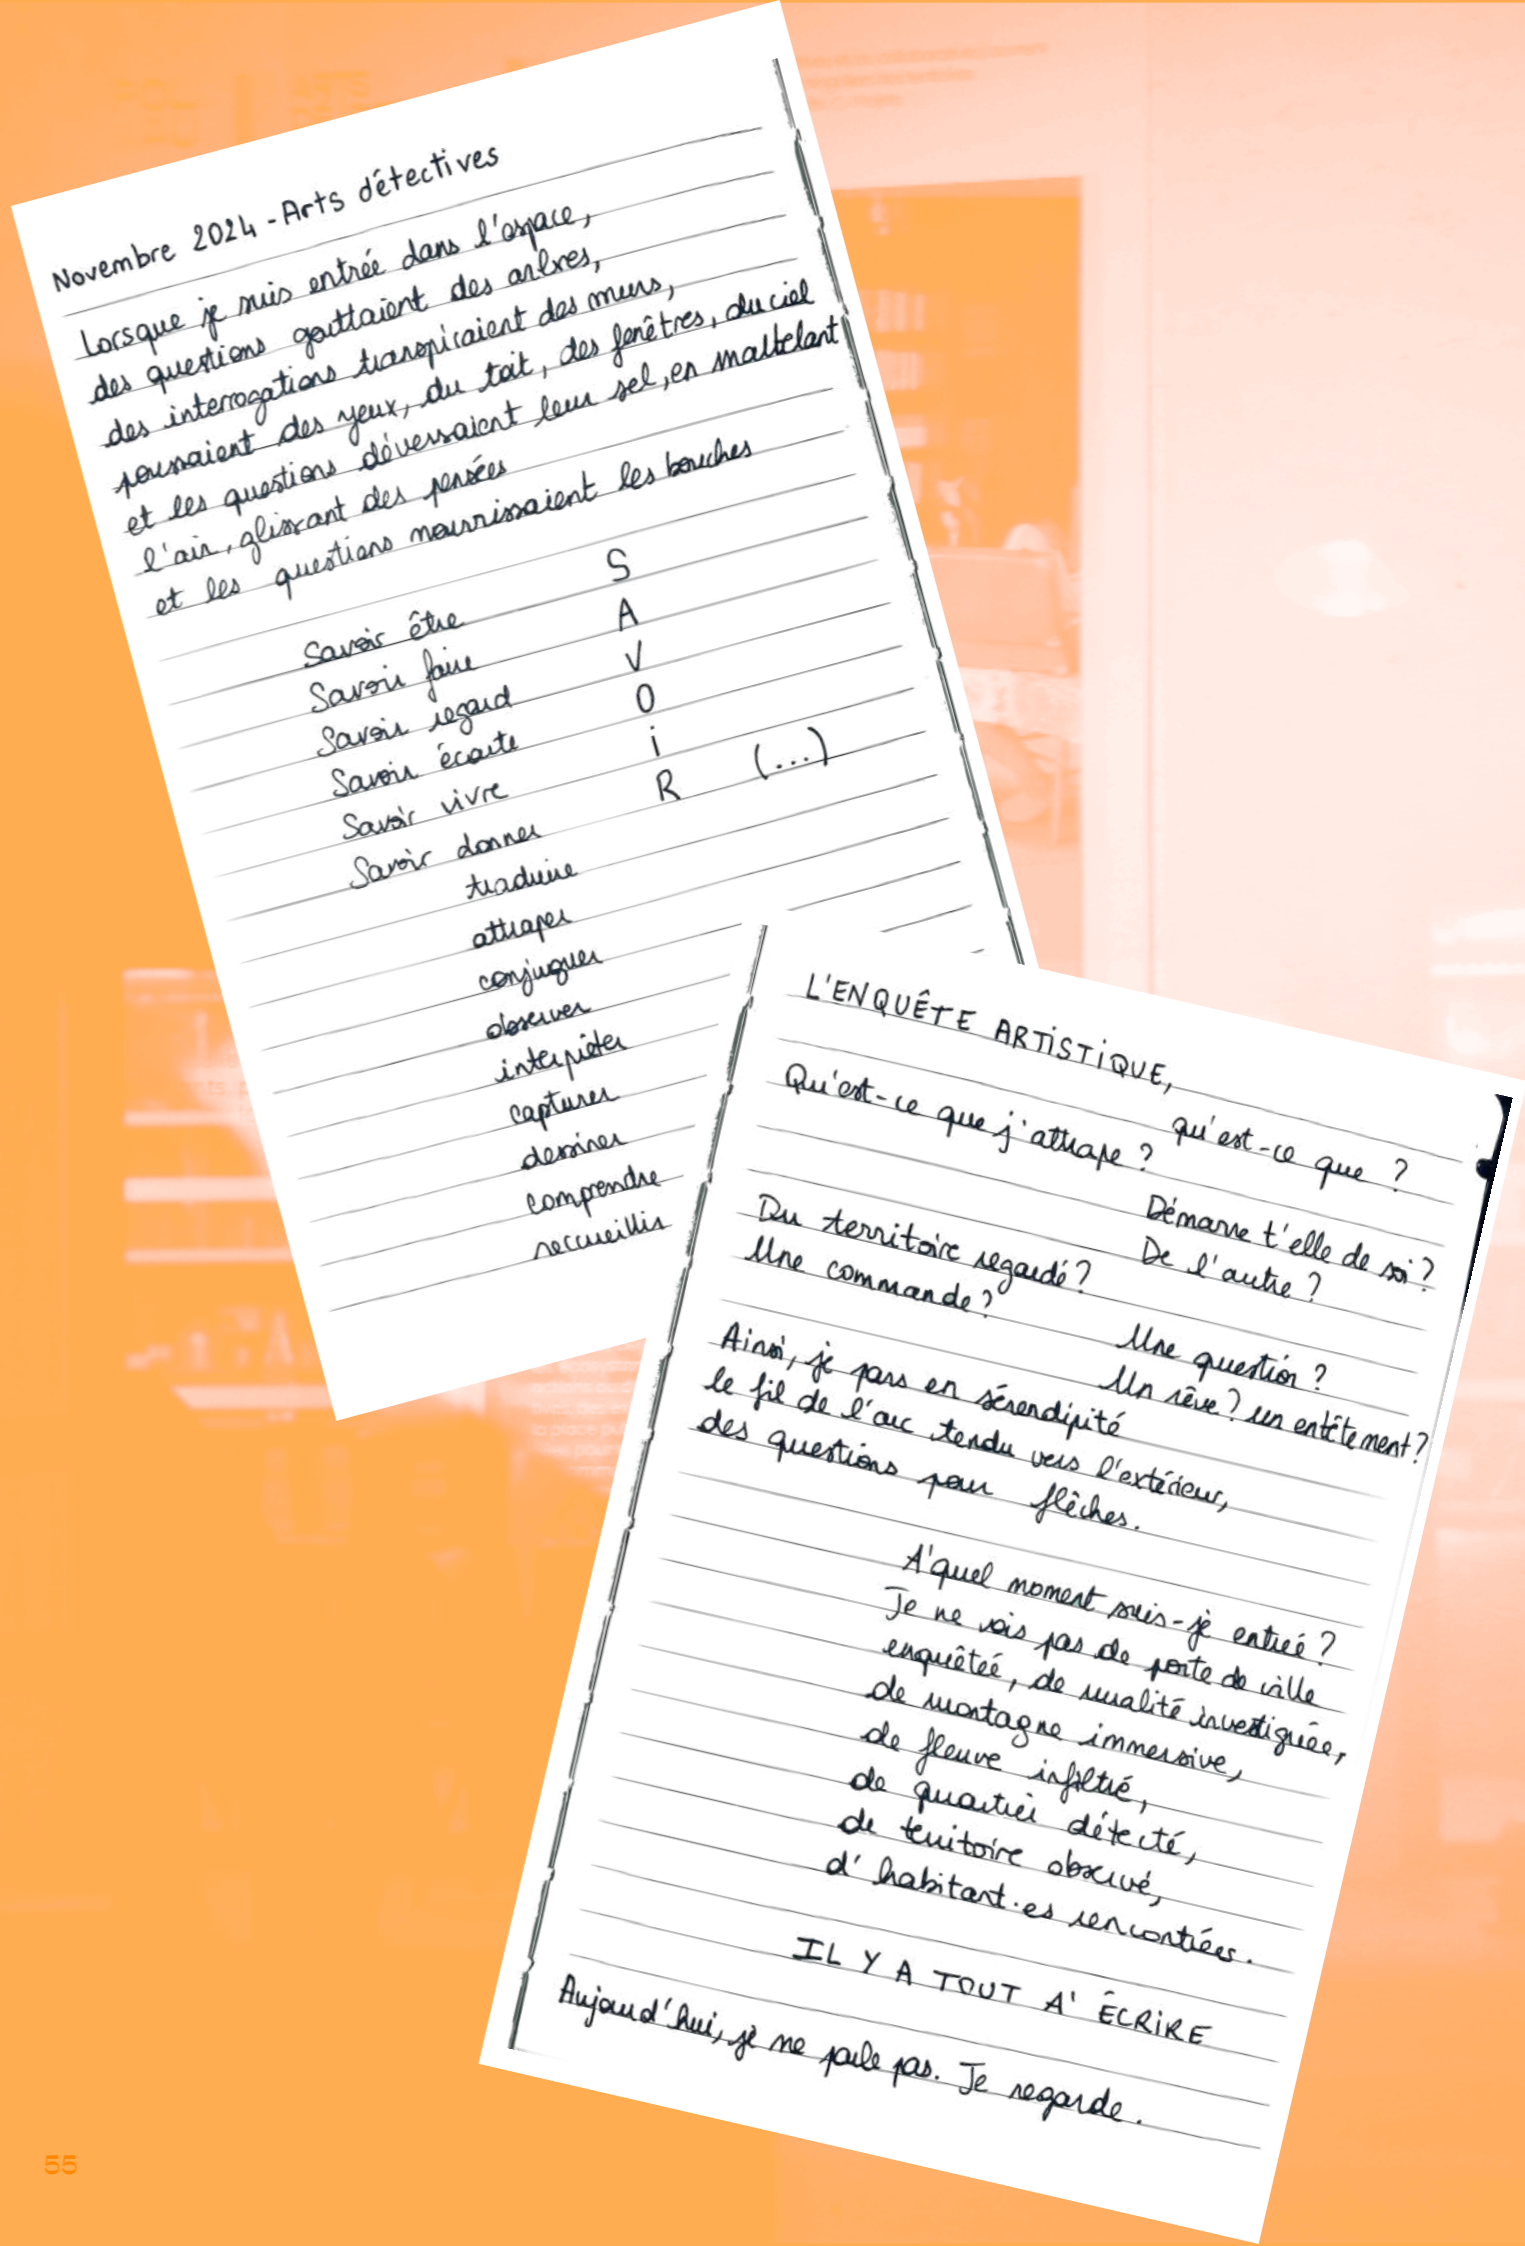 Novembre 2024 - Arts détectives
Lorsque je suis entrée dans l'espace,
des questions gouttaient des arbres,
des interrogations transpiraient des murs,
poussaient des yeux, du toit, des fenêtres, du ciel
et les questions déversaient leur sel, en malbelant
l'air, glissant des pensées
et les questions nourrissaient les bouches
S
Savoir être A
Savoir faire V
Savoir regard O
Savoir écoute i
Savoir vivre R (...)
Savoir donner
traduire
attraper
conjuguer
observer
interpréter
capturer
dessiner
comprendre
reccueillir
L'ENQUÊTE ARTiSTiQUE,
qu'est-ce que ?
Qu'est-ce que j'attrape ?
Démarre t'elle de soi ?
De l'autre ?
Du territoire regardé ?
Une commande ?
Une question ?
Un rêve ? un entêtement ?
Ainsi, je pars en sérendipité
le fil de l'arc tendu vers l'extérieur,
des questions pour flêches.
A' quel moment suis-je entreé ?
Je ne vois pas de porte de ville
enquêteé, de ruralité investiguée,
de montagne immersive,
de fleuve infiltré,
de quartier détecté,
de territoire observé,
d'habitant·es rencontrées.
IL Y A TOUT A' ÉCRiRE
Aujourd'hui, je ne parle pas. Je regarde.
55